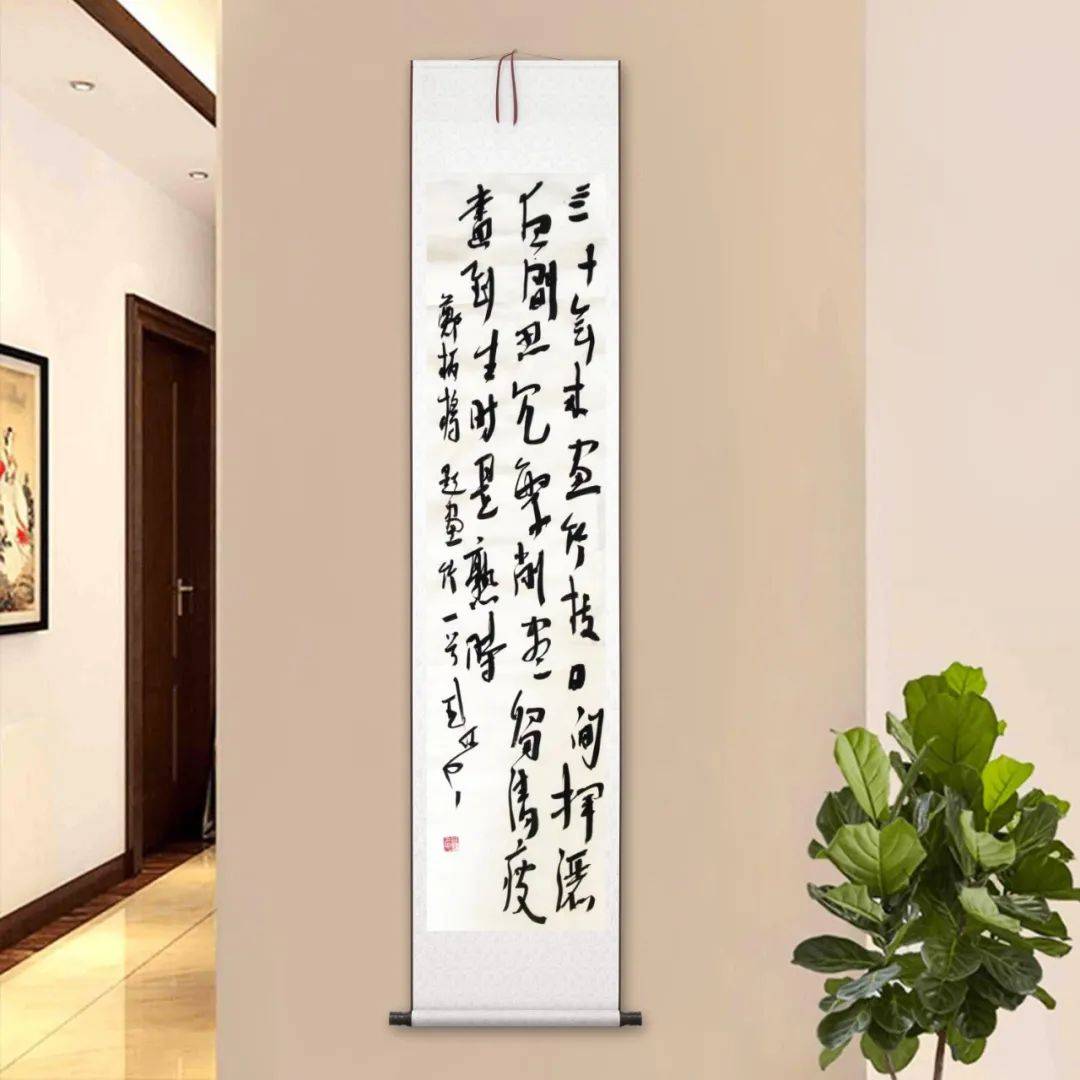 三十年来画竹枝日间挥灑
夜間思冗繁削尽留清瘦
畫到生时是熟時
鄭板橋题画竹一首